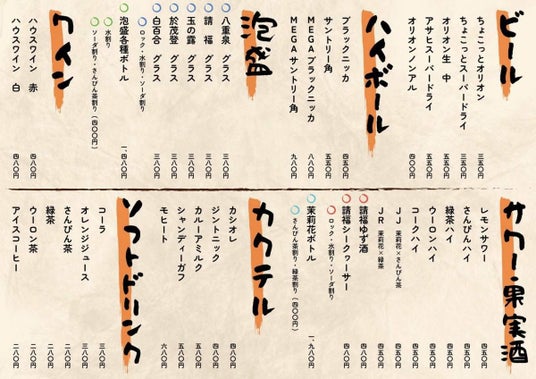 ビール
ちょこっとオリオン 三五〇円
ちょこっとスーパードライ 三五〇円
オリオン生 中 五五〇円
アサヒスーパードライ 五五〇円
オリオンノンアル 四〇〇円
ハイボール
ブラックニッカ 四五〇円
サントリー角 五五〇円
MEGAブラックニッカ 八八〇円
MEGAサントリー角 九八〇円
泡盛
八重泉 グラス 三八〇円
請福 グラス 三八〇円
玉の露 グラス 三八〇円
於茂登 グラス 三八〇円
白百合 グラス 三八〇円
ロック・水割り・ソーダ割り
泡盛各種ボトル 一、四八〇円
水割り
ソーダ割り・さんぴん茶割り(四〇〇円)
ワイン
ハウスワイン 赤 四八〇円
ハウスワイン 白 四八〇円
サワー・果実酒
レモンサワー 四五〇円
さんぴんハイ 四五〇円
緑茶ハイ 四五〇円
ウーロンハイ 四五〇円
コークハイ 四五〇円
JJ 茉莉花×さんぴん茶 四五〇円
JR 茉莉花×緑茶 四五〇円
請福ゆず酒 四八〇円
請福シークヮーサー 四八〇円
ロック・水割り・ソーダ割り
茉莉花ボトル 一、九八〇円
さんぴん茶割り・緑茶割り(四〇〇円)
カクテル
カシオレ 四八〇円
ジントニック 四八〇円
カルーアミルク 四八〇円
シャンディーガフ 五八〇円
モヒート 六八〇円
ソフトドリンク
コーラ 三八〇円
オレンジジュース 三八〇円
さんぴん茶 二八〇円
緑茶 二八〇円
ウーロン茶 二八〇円
アイスコーヒー 二八〇円